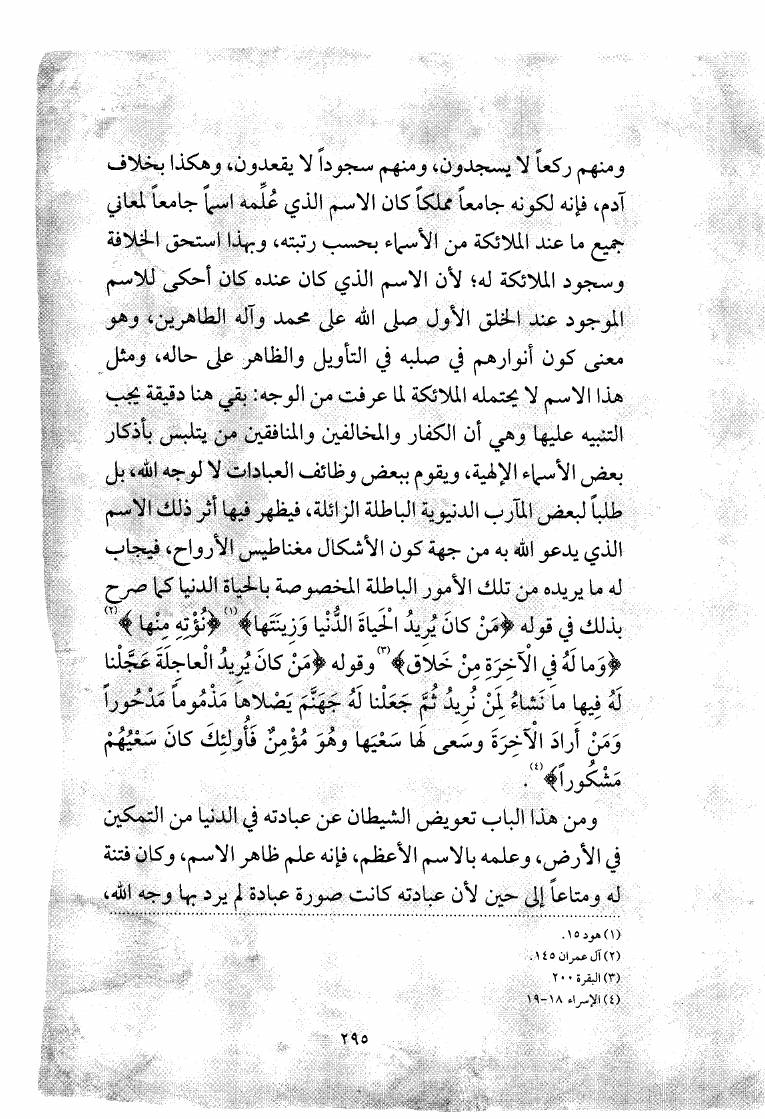 ومنهم ركعاً لا يسجدون، ومنهم سجوداً لا يقعدون، وهكذا بخلاف
آدم، فإنه لكونه جامعاً مملكاً كان الاسم الذي عُلِّمه اسماً جامعاً لمعاني
جميع ما عند الملائكة من الأسماء بحسب رتبته، وبهذا استحق الخلافة
وسجود الملائكة له؛ لأن الاسم الذي كان عنده كان أحكى للاسم
الموجود عند الخلق الأول صلى الله على محمد وآله الطاهرين، وهو
معنى كون أنوارهم في صلبه في التأويل والظاهر على حاله، ومثل
هذا الاسم لا يحتمله الملائكة لما عرفت من الوجه: بقي هنا دقيقة يجب
التنبيه عليها وهي أن الكفار والمخالفين والمنافقين من يتلبس بأذكار
بعض الأسماء الإلهية، ويقوم ببعض وظائف العبادات لا لوجه الله، بل
طلباً لبعض المآرب الدنيوية الباطلة الزائلة، فيظهر فيها أثر ذلك الاسم
الذي يدعو الله به من جهة كون الأشكال مغناطيس الأرواح، فيجاب
له ما يريده من تلك الأمور الباطلة المخصوصة بالحياة الدنيا كما صرح
بذلك في قوله ﴿مَنْ كانَ يُرِيدُ الْحَياةَ الدُّنْيا وَزِينَتَها﴾(١) ﴿نُؤْتِهِ مِنْها﴾(٢)
﴿وَما لَهُ فِي الْآخِرَةِ مِنْ خَلاقٍ﴾(٣) وقوله ﴿مَنْ كانَ يُرِيدُ الْعاجِلَةَ عَجَّلْنا
لَهُ فِيها ما نَشاءُ لِمَنْ نُرِيدُ ثُمَّ جَعَلْنا لَهُ جَهَنَّمَ يَصْلاها مَذْمُوماً مَدْحُوراً
وَمَنْ أَرادَ الْآخِرَةَ وَسَعى لَها سَعْيَها وهُوَ مُؤْمِنٌ فَأُولئِكَ كانَ سَعْيُهُمْ
مَشْكُوراً﴾(٤).
ومن هذا الباب تعويض الشيطان عن عبادته في الدنيا من التمكين
في الأرض، وعلمه بالاسم الأعظم، فإنه علم ظاهر الاسم، وكان فتنة
له ومتاعاً إلى حين لأن عبادته كانت صورة عبادة لم يرد بها وجه الله،
(١) هود ١٥.
(٢) آل عمران ١٤٥.
(٣) البقرة ٢٠٠
(٤) الإسراء ١٨-١٩
٢٩٥